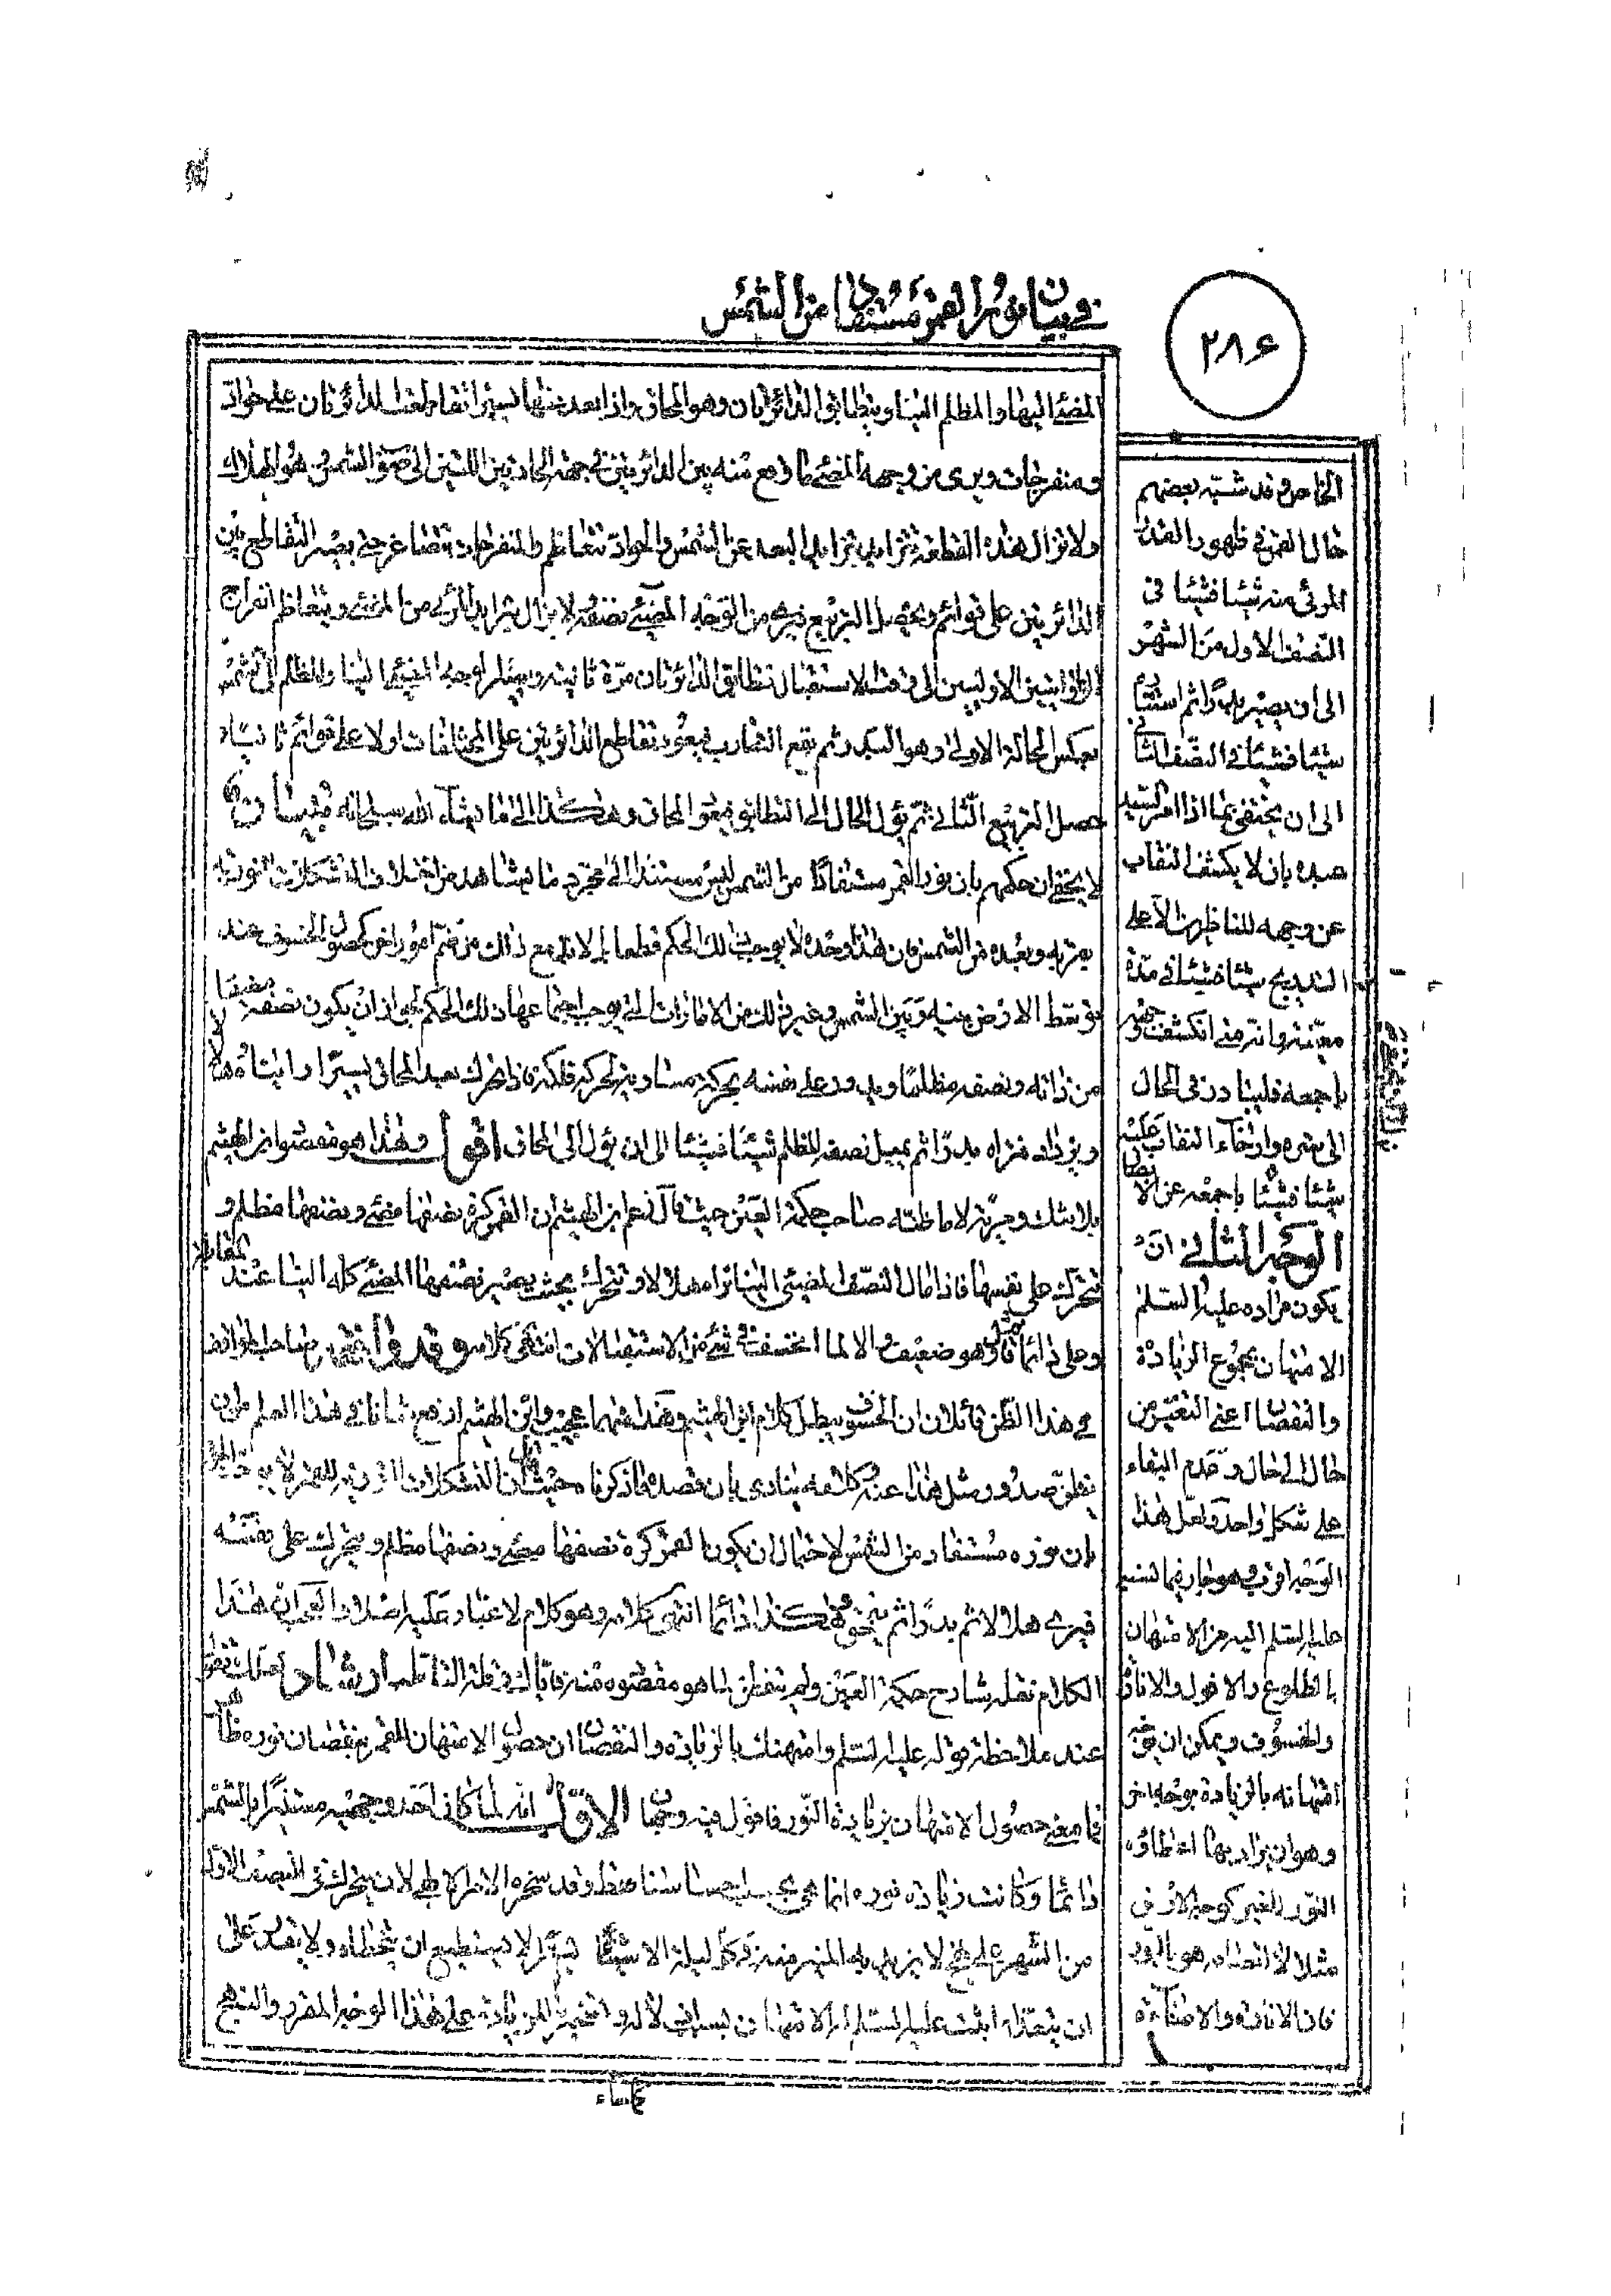 في بيان نور القمر مستفادا من الشمس
٢٨۶
المضئ اليها والمظلم الينا ويتطابق الدائرتان وهو المحاق واذا بعد عنها يسيرا تقاطعت الدائرتان على حوادّ
ومنفرجات ويرى من وجهه المضئ ما وقع منه بين الدائرتين في جهة الحادتين اللتين الى صوب الشمس وهو الهلال
ولا تزال هذه القطعة تتزايد بتزايد البعد عن الشمس والحوادّ تتعاظم والمنفرجات تتصاغر حتى يصير التقاطع بين
الدائرتين على قوائم ويحصل التربيع فيرى من الوجه المضئ نصفه ولا يزال يتزايد المرئي من المضئ ويتعاظم انفراج
الزاويتين الاوليين الى وقت الاستقبال فتطابق الدائرتان مرّة ثانية ويصير الوجه المضئ الينا والمظلم الى الشمس
بعكس الحالة الاولى وهو البدر ثم يقع التقارب فيعود تقاطع الدائرتين على المختلفات اولا على قوائم ثانيا و
حصل التربيع الثاني ثم يؤل الحال الى التطابق فيعود المحاق وهكذا الى ما يشاء الله سبحانه
لا يخفى ان حكمهم بان نور القمر مستفادًا من الشمس ليس مستندا الى مجرد ما يشاهد من اختلاف التشكلات النورية
بقربه وبعده من الشمس فان هذا وحده لا يوجب ذلك الحكم قطعا بل لا بد مع ذلك من ضمّ امور اخر كحصول الخسوف عند
توسّط الارض بينه وبين الشمس وغير ذلك من الامارات التي يوجب اجتماعها ذلك الحكم لجواز ان يكون نصفه مضيئا
من ذاته ونصفه مظلما ويدور على نفسه بحركة مساوية لحركة فلكه فاذا تحرك بعد المحاق يسيرًا رأيناه هلالا
ويزداد فنراه بدرًا ثم يميل نصفه المظلم شيئا فشيئا الى ان يؤل الى المحاق اقول وهذا هو مقصود ابن الهيثم
بلا شك ومرية لا ما ظنه صاحب حكمة العين حيث قال زعم ابن الهيثم ان القمر كرة نصفها مضئ ونصفها مظلم و
تتحرك على نفسها فاذا مال النصف المضئ الينا نراه هلالا وتتحرك بحيث يصير نصفها المضئ كله الينا عند المقابلة
وعلى ذا دائما قال وهو ضعيف والا لما انخسف في شئ من الاستقبالات انتهى كلامه وقد وافقه صاحب المواقف
في هذا الظن قائلا ان الخسوف يبطل كلام ابن الهيثم وهذا منهما عجيب وابن الهيثم ارفع شانا في هذا العلم من ان
يظن صدور مثل هذا عنه وكلامه ينادي بان قصده ما ذكرناه حيث قال ان التشكلات النورية للقمر لا
بان نوره مستفاد من الشمس لاحتمال ان يكون القمر كرة نصفها مضئ ونصفها مظلم ويتحرك على نفسه
فيرى هلالا ثم بدرًا ثم ينمحق وهكذا دائما انتهى كلامه وهو كلام لا غبار عليه اصلا والعجب ان هذا
الكلام نقله شارح حكمة العين ولم يتفطن لما هو مقصوده منه فاياك وقلة التأمل ارشاد لعلك تقول
عند ملاحظة قوله عليه السلم وامتهنك بالزيادة والنقصان ان حصول الامتهان للقمر بنقصان نوره ظاهر
فما معنى حصول الامتهان بزيادة النور فاقول فيه وجهان الاول انه لما كان احد وجهيه مستنيرًا بالشمس
دائما وكانت زيادة نوره انما هي بحسب احساسنا فقط وقد سخره الامر الالهي لان يتحرك في النصف الاول
من الشهر على نهج لا يزيد به المنير منه في كل ليلة الا شيئا يسيرا لا يستطيع ان يتخطاه ولا يقدر على
ان يتعداه اثبت عليه السلم له الامتهان بسبب اذلاله وتسخيره للزيادة على هذا الوجه المقرر والنهج
الخاص وقد شبّه بعضهم
حال القمر في ظهور القدر
المرئي منه شيئا فشيئا في
النصف الاول من الشهر
الى ان يصير بدرًا ثم استتاره
شيئا فشيئا في النصف الثاني
الى ان يختفي بما اذا امر السيد
عبده بان لا يكشف النقاب
عن وجهه للناظرين الا على
التدريج شيئا فشيئا في مدة
معينة وانه متى انكشف وجهه
باجمعه فليبادر في الحال
الى ستره وارخاء النقاب عليه
شيئا فشيئا باجمعه عن الابصار
الوجه الثاني ان
يكون مراده عليه السلم
الامتهان بمجموع الزيادة
والنقصان اعني التغير من
حال الى حال وعدم البقاء
على شكل واحد ولعل هذا
الوجه اقرب وهو جار فيما نسبه
عليه السلم اليه من الامتهان
بالطلوع والافول والانارة
والخسوف ويمكن ان يوجّه
امتهانه بالزيادة بوجه اخر
وهو ان يراد بها اعطاؤه
النور للغير كوجه الارض
مثلا لا اتصافه هو بالنور
فان الانارة والاضاءة